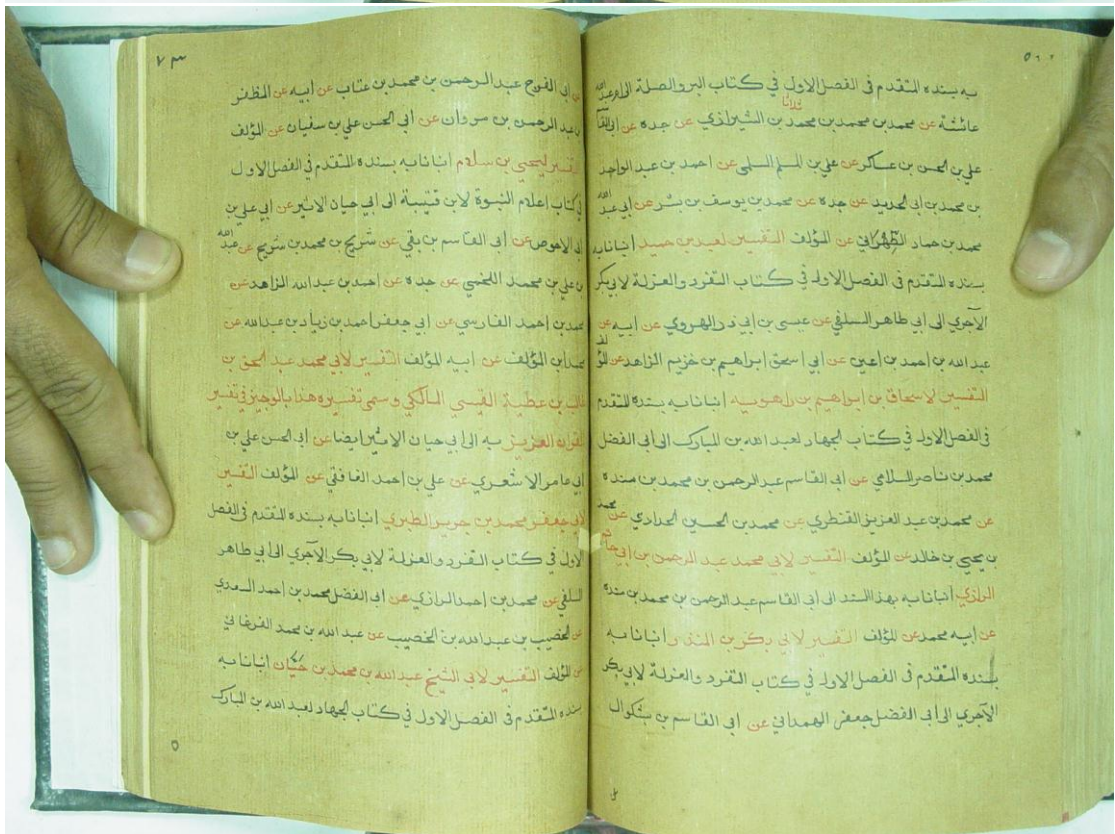 ٥٦٢
به بسنده المتقدم في الفصل الاول في كتاب البر والصلة الى ام عبد الله
عائشة عن محمد بن محمد بن محمد ثلاثا بن الشيرازي عن جده عن ابي القاسم
علي بن الحسن بن عساكر عن علي بن المسلم السلمي عن احمد بن عبد الواحد
بن محمد بن ابي الحديد عن جده عن محمد بن يوسف بن بشر عن ابي عبد الله
محمد بن حماد الطهراني عن المؤلف التفسير لعبد بن حميد انبانا به
بسنده المتقدم في الفصل الاول في كتاب التفرد والعزلة لابي بكر
الآجري الى ابي طاهر السلفي عن عيسى بن ابي ذر الهروي عن ابيه عن
عبد الله بن احمد بن اعين عن ابي اسحق ابراهيم بن خزيم الزاهد عن المؤلف
التفسير لاسحاق بن ابراهيم بن راهويه انبانا به بسنده المتقدم
في الفصل الاول في كتاب الجهاد لعبد الله بن المبارك الى ابي الفضل
محمد بن ناصر السلامي عن ابي القاسم عبد الرحمن بن محمد بن منده
عن محمد بن عبد العزيز القنطري عن محمد بن الحسين الحدادي عن محمد
بن يحيى بن خالد عن المؤلف التفسير لابي محمد عبد الرحمن بن ابي حاتم
الرازي انبانا به بهذا السند الى ابي القاسم عبد الرحمن بن محمد بن منده
عن ابيه محمد عن المؤلف التفسير لابي بكر بن المنذر انبانا به
بسنده المتقدم في الفصل الاول في كتاب التفرد والعزلة لابي بكر
الآجري الى ابي الفضل جعفر الهمداني عن ابي القاسم بن بشكوال
٧٣
عن ابي الفرج عبد الرحمن بن محمد بن عتاب عن ابيه عن المظفر
بن عبد الرحمن بن سروان عن ابي الحسن علي بن سفيان عن المؤلف
التفسير ليحيى بن سلام انبانا به بسنده المتقدم في الفصل الاول
في كتاب اعلام النبوة لابن قتيبة الى ابي حيان الاثير عن ابي علي بن
ابي الاحوص عن ابي القاسم بن بقي عن شريح بن محمد بن شريح عن عبد الله
بن علي بن محمد اللخمي عن جده عن احمد بن عبد الله الزاهد عن
محمد بن احمد الفارسي عن ابي جعفر احمد بن زياد بن عبد الله عن
محمد ابن المؤلف عن ابيه المؤلف التفسير لابي محمد عبد الحق بن
غالب بن عطية القيسي المالكي وسمى تفسيره هذا بالوجيز في تفسير
القران العزيز به الى ابي حيان الاثير ايضا عن ابي الحسن علي بن
ابي عامر الاشعري عن علي بن احمد الغافقي عن المؤلف التفسير
لابي جعفر محمد بن جرير الطبري انبانا به بسنده المتقدم في الفصل
الاول في كتاب التفرد والعزلة لابي بكر الآجري الى ابي طاهر
السلفي عن محمد بن احمد الرازي عن ابي الفضل محمد بن احمد السعدي
عن الخصيب بن عبد الله بن الخصيب عن عبد الله بن محمد الفرغاني
عن المؤلف التفسير لابي الشيخ عبد الله بن محمد بن حيان انبانا به
بسنده المتقدم في الفصل الاول في كتاب الجهاد لعبد الله بن المبارك